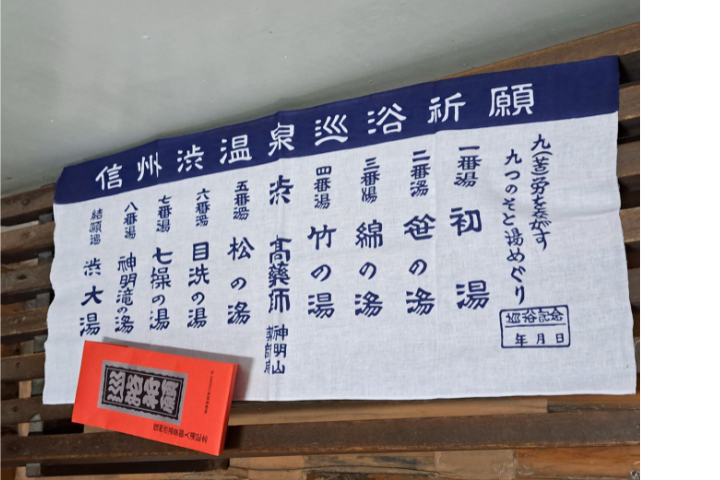 信州渋温泉巡浴祈願
九(苦)労をながす
九つのそと湯めぐり
巡浴記念
年月日
一番湯 初湯
二番湯 笹の湯
三番湯 綿の湯
四番湯 竹の湯
渋 髙藥師 神明山
五番湯 松の湯
六番湯 目洗の湯
七番湯 七操の湯
八番湯 神明滝の湯
結願湯 渋大湯
巡浴祈願